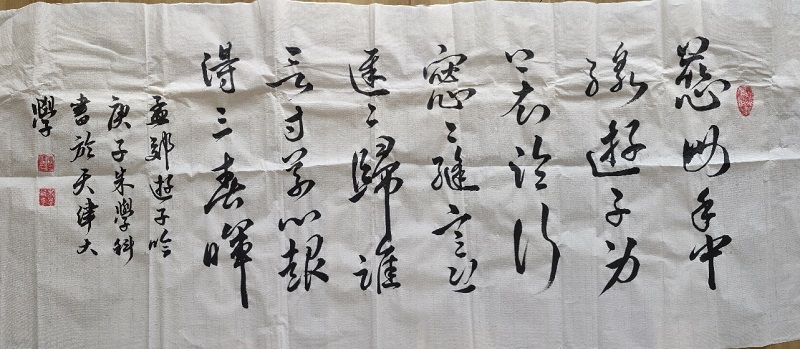 慈母手中
線遊子身
上衣臨行
密〻縫意恐
遲〻歸誰
言寸草心報
得三春暉
孟郊遊子吟
庚子朱學科
書於天津大
學